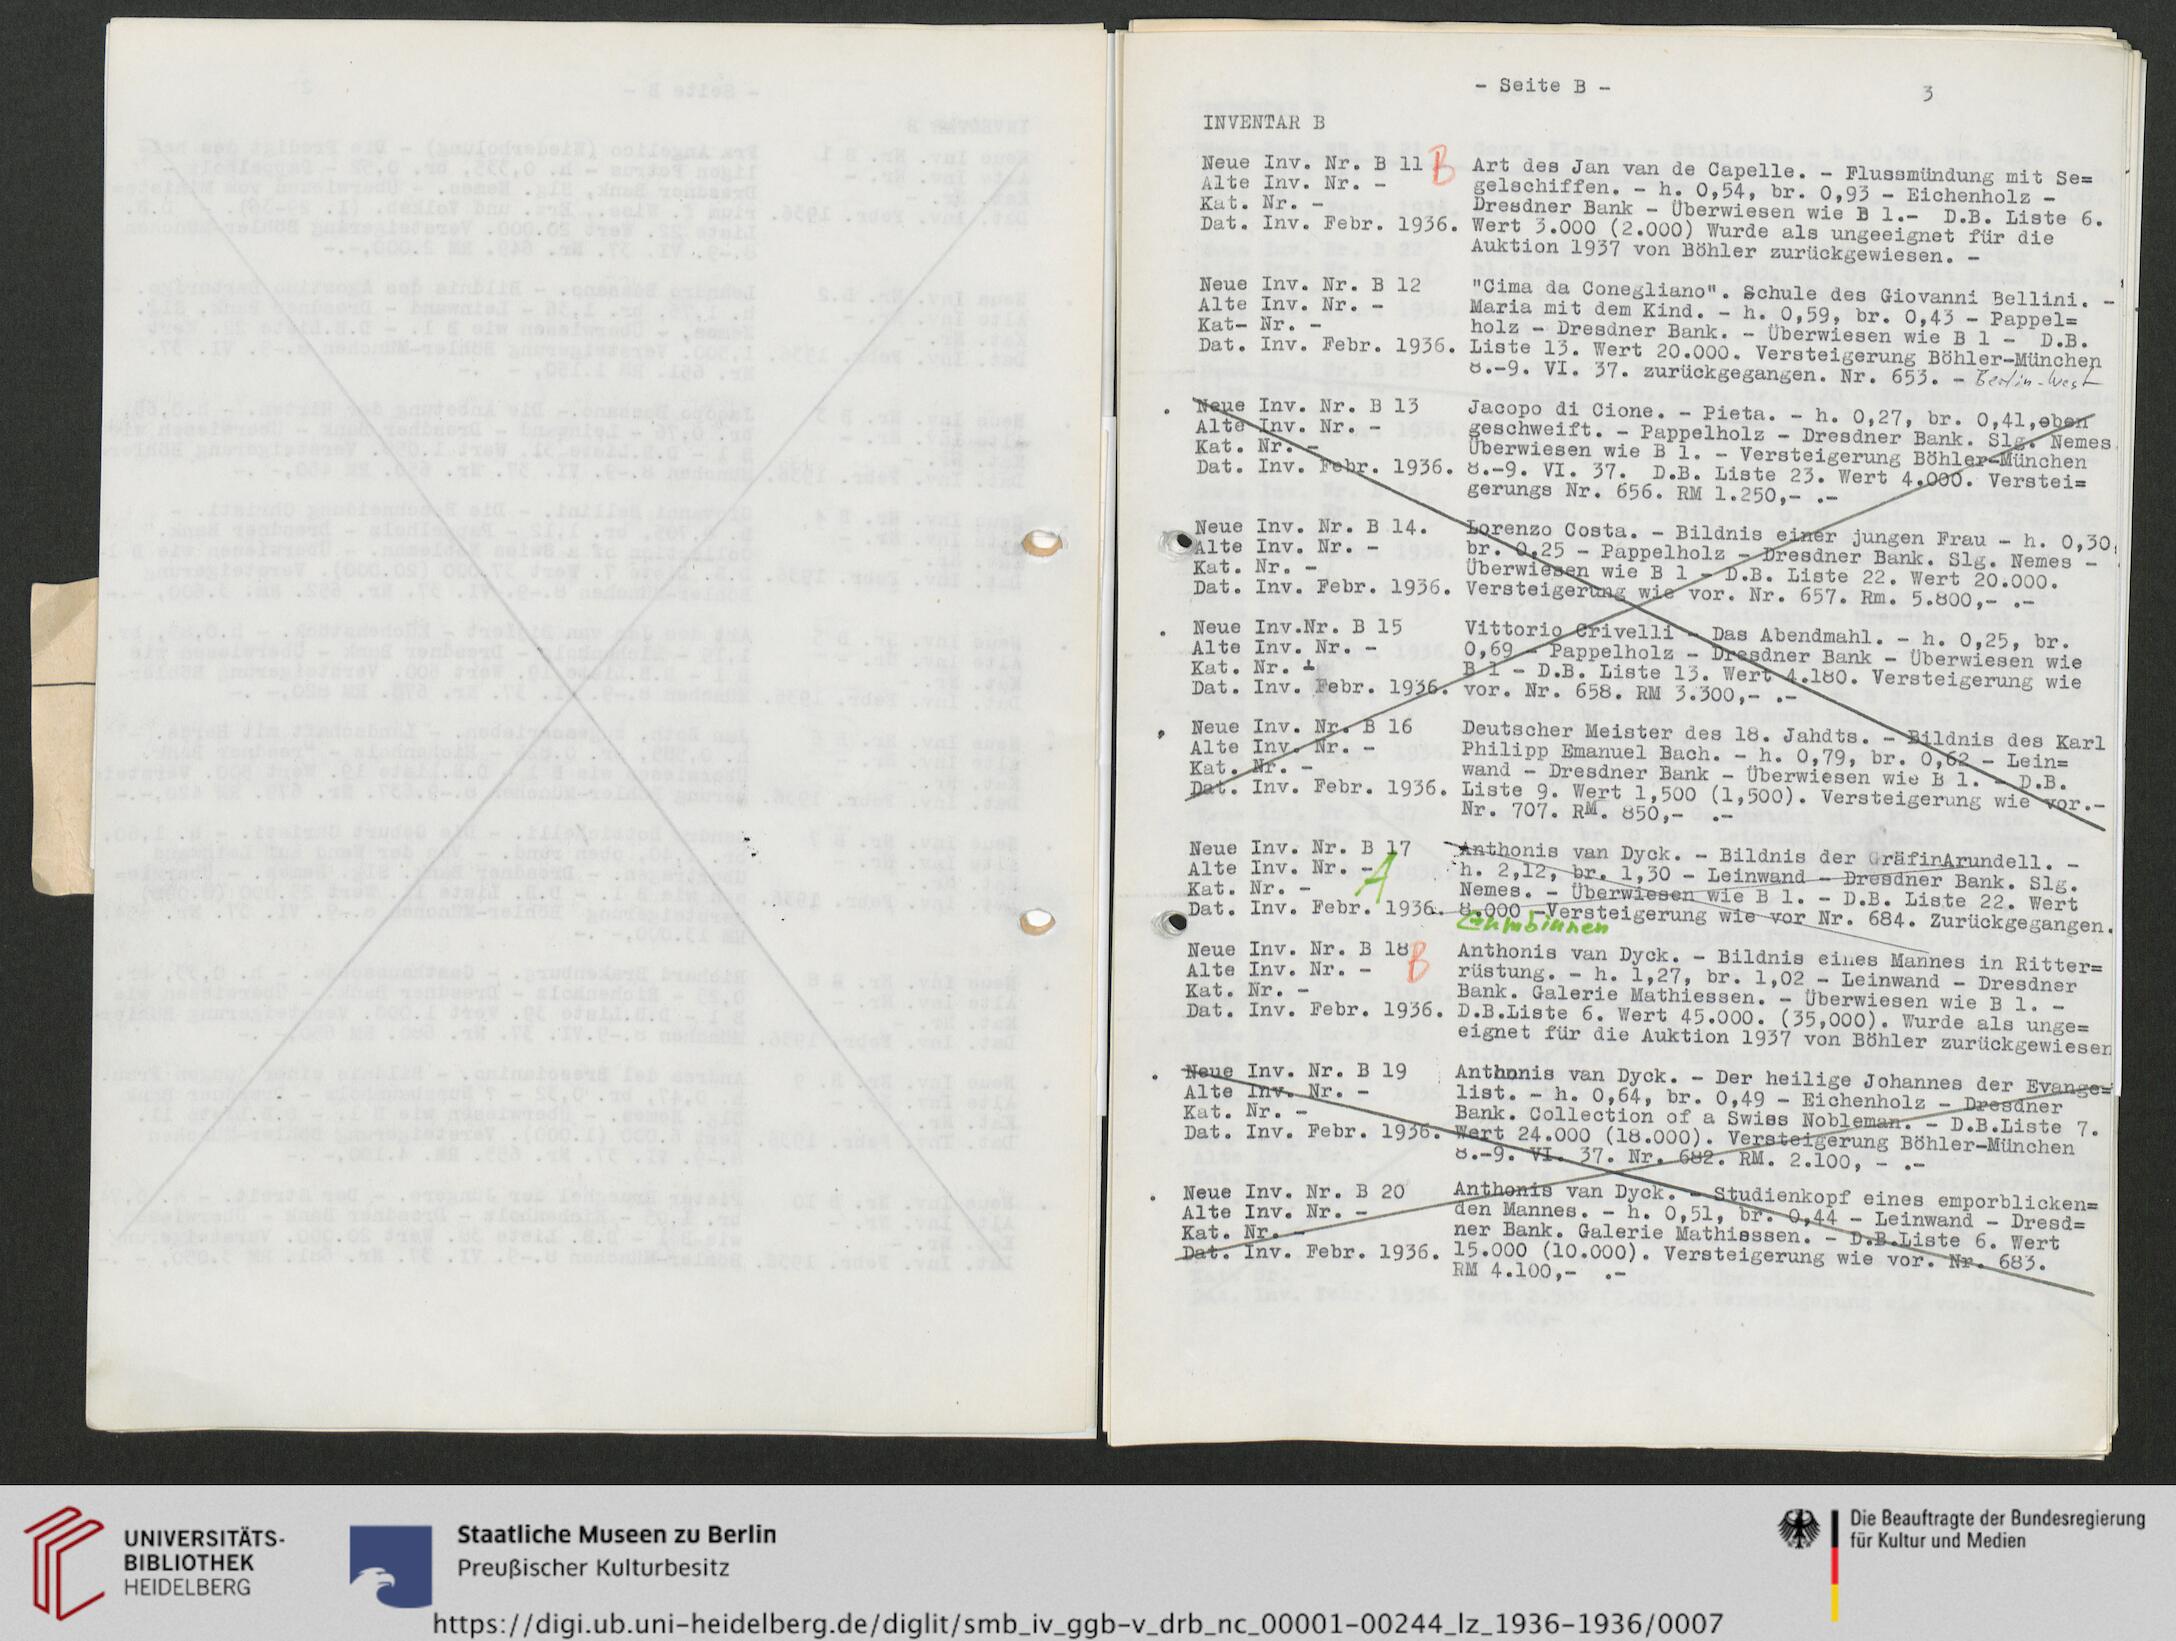 - Seite B -
3
INVENTAR B
Neue Inv. Nr. B 11 B
Alte Inv. Nr. -
Kat. Nr. -
Dat. Inv. Febr. 1936.
Art des Jan van de Capelle. - Flussmündung mit Se=
gelschiffen. - h. 0,54, br. 0,93 - Eichenholz -
Dresdner Bank - Überwiesen wie B 1.- D.B. Liste 6.
Wert 3.000 (2.000) Wurde als ungeeignet für die
Auktion 1937 von Böhler zurückgewiesen. -
Neue Inv. Nr. B 12
Alte Inv. Nr. -
Kat- Nr. -
Dat. Inv. Febr. 1936.
"Cima da Conegliano". Schule des Giovanni Bellini. -
Maria mit dem Kind. - h. 0,59, br. 0,43 - Pappel=
holz - Dresdner Bank. - Überwiesen wie B 1 - D.B.
Liste 13. Wert 20.000. Versteigerung Böhler-München
8.-9. VI. 37. zurückgegangen. Nr. 653. - Berlin-West
. Neue Inv. Nr. B 13
Alte Inv. Nr. -
Kat. Nr. -
Dat. Inv. Febr. 1936.
Jacopo di Cione. - Pieta. - h. 0,27, br. 0,41,oben
geschweift. - Pappelholz - Dresdner Bank. Slg. Nemes
Überwiesen wie B 1. - Versteigerung Böhler-München
8.-9. VI. 37. D.B. Liste 23. Wert 4.000. Verstei=
gerungs Nr. 656. RM 1.250,- .-
Neue Inv. Nr. B 14.
Alte Inv. Nr. -
Kat. Nr. -
Dat. Inv. Febr. 1936.
Lorenzo Costa. - Bildnis einer jungen Frau - h. 0,30,
br. 0,25 - Pappelholz - Dresdner Bank. Slg. Nemes -
Überwiesen wie B 1 - D.B. Liste 22. Wert 20.000.
Versteigerung wie vor. Nr. 657. Rm. 5.800,- .-
. Neue Inv.Nr. B 15
Alte Inv. Nr. -
Kat. Nr. -
Dat. Inv. Febr. 1936.
Vittorio Crivelli - Das Abendmahl. - h. 0,25, br.
0,69 - Pappelholz - Dresdner Bank - Überwiesen wie
B 1 - D.B. Liste 13. Wert 4.180. Versteigerung wie
vor. Nr. 658. RM 3.300,- .-
. Neue Inv. Nr. B 16
Alte Inv. Nr. -
Kat. Nr. -
Dat. Inv. Febr. 1936.
Deutscher Meister des 18. Jahdts. - Bildnis des Karl
Philipp Emanuel Bach. - h. 0,79, br. 0,62 - Lein=
wand - Dresdner Bank - Überwiesen wie B 1. - D.B.
Liste 9. Wert 1,500 (1,500). Versteigerung wie vor.-
Nr. 707. RM. 850,- .-
Neue Inv. Nr. B 17
Alte Inv. Nr. - A
Kat. Nr. -
Dat. Inv. Febr. 1936.
Anthonis van Dyck. - Bildnis der GräfinArundell. -
h. 2,12, br. 1,30 - Leinwand - Dresdner Bank. Slg.
Nemes. - Überwiesen wie B 1. - D.B. Liste 22. Wert
8.000 -Versteigerung wie vor Nr. 684. Zurückgegangen.
Gumbinnen
Neue Inv. Nr. B 18
Alte Inv. Nr. - B
Kat. Nr. -
Dat. Inv. Febr. 1936.
Anthonis van Dyck. - Bildnis eines Mannes in Ritter=
rüstung. - h. 1,27, br. 1,02 - Leinwand - Dresdner
Bank. Galerie Mathiessen. - Überwiesen wie B 1. -
D.B.Liste 6. Wert 45.000. (35,000). Wurde als unge=
eignet für die Auktion 1937 von Böhler zurückgewiesen
. Neue Inv. Nr. B 19
Alte Inv. Nr. -
Kat. Nr. -
Dat. Inv. Febr. 1936.
Anthonis van Dyck. - Der heilige Johannes der Evange=
list. - h. 0,64, br. 0,49 - Eichenholz - Dresdner
Bank. Collection of a Swiss Nobleman. - D.B.Liste 7.
Wert 24.000 (18.000). Versteigerung Böhler-München
8.-9. VI. 37. Nr. 682. RM. 2.100, - .-
. Neue Inv. Nr. B 20
Alte Inv. Nr. -
Kat. Nr. -
Dat. Inv. Febr. 1936.
Anthonis van Dyck. - Studienkopf eines emporblicken=
den Mannes. - h. 0,51, br. 0,44 - Leinwand - Dresd=
ner Bank. Galerie Mathiessen. - D.B.Liste 6. Wert
15.000 (10.000). Versteigerung wie vor. Nr. 683.
RM 4.100,- .-
UNIVERSITÄTS-
BIBLIOTHEK
HEIDELBERG
Staatliche Museen zu Berlin
Preußischer Kulturbesitz
Die Beauftragte der Bundesregierung
für Kultur und Medien
https://digi.ub.uni-heidelberg.de/diglit/smb_iv_ggb-v_drb_nc_00001-00244_lz_1936-1936/0007